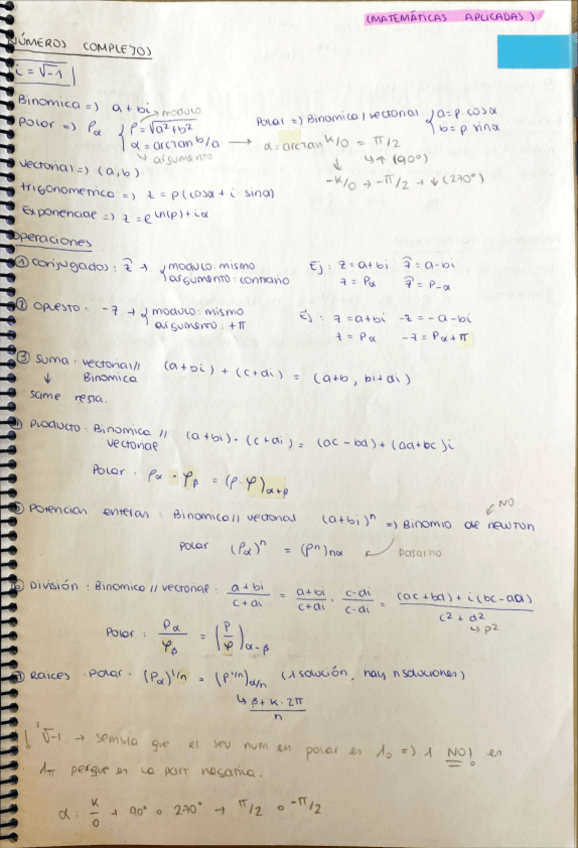 (MATEMÁTICAS APLICADAS)
NÚMEROS COMPLEJOS
i = √-1
Binomica => a + bi
modulo
Polar => ρα { ρ = √a²+b²
α = arctan b/a
argumento
Polar => Binomica / vectorial { a = ρ · cos α
b = ρ sin α
→ α = arctan k/0 = π/2
↓ ↳ ↑ (90°)
-k/0 → -π/2 → ↓ (270°)
Vectorial => (a,b)
trigonometrica => z = ρ(cos α + i sin α)
Exponencial => z = e^ln(ρ)+iα
Operaciones
① Conjugados: z̄ → { modulo: mismo
argumento: contrario
Ej: z = a+bi z̄ = a-bi
z = ρα z̄ = ρ-α
② Opuesto: -z → { modulo: mismo
argumento: +π
Ej: z = a+bi -z = -a-bi
z = ρα -z = ρα+π
③ Suma: vectorial // (a+bi) + (c+di) = (a+b, bi+di)
↓ Binomica
same resta.
④ Producto: Binomica // (a+bi) · (c+di) = (ac-bd) + (ad+bc)i
vectorial
Polar: ρα · φβ = (ρ·φ)α+β
NO
⑤ Potencias enteras: Binomica // vectorial (a+bi)ⁿ => Binomio de newton
Polar (ρα)ⁿ = (ρⁿ)nα ← Pasarlo
⑥ División: Binomica // vectorial: a+bi/c+di = a+bi/c+di · c-di/c-di = (ac+bd)+i(bc-ad)/c²+d²
↳ ρ²
Polar: ρα/φβ = (ρ/φ)α-β
⑦ Raices: Polar: (ρα)^1/n = (ρ^1/n)α/n (1 solución, hay n soluciones)
↳ β+k·2π/n
! ³√-1 → sembla que el seu num en polar es 1₀ => 1 NO! es
1π perque es la part negativa.
α: k/0 → 90° o 270° → π/2 o -π/2